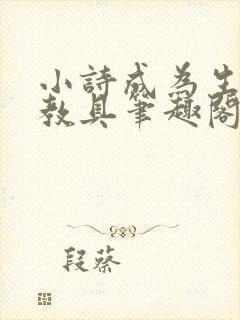 小詩成為生
教具筆趣閣
段蔡